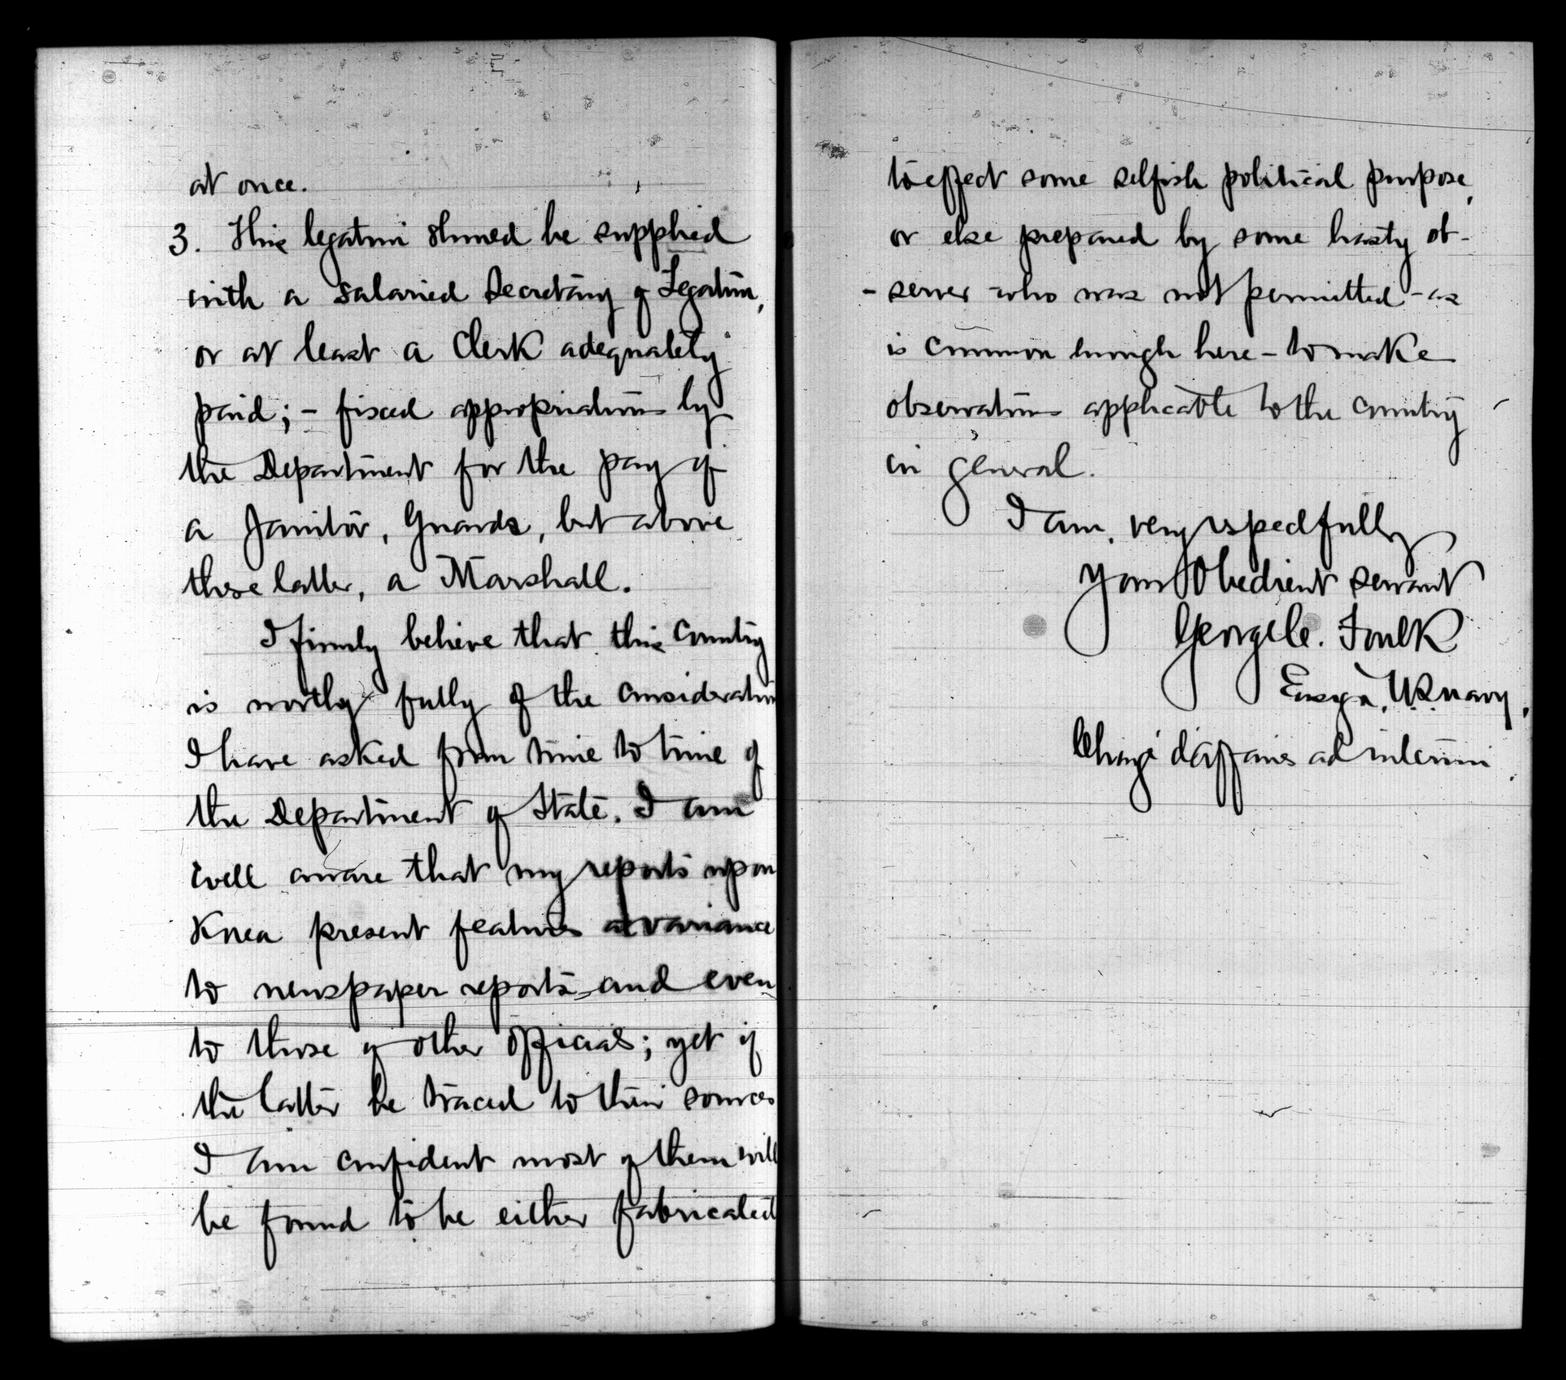 at once.
3. This legation should be supplied
with a salaried Secretary of Legation,
or at least a Clerk adequately
paid; - fixed appropriations by
the Department for the pay of
a Janitor, Guards, but above
these latter, a Marshall.
I firmly believe that this Country
is worthy fully of the consideration
I have asked from time to time of
the Department of State. I am
well aware that my reports upon
Korea present features at variance
to newspaper reports and even
to those of other officials; yet if
the latter be traced to their sources
I am confident most of them will
be found to be either fabricated
to effect some selfish political purpose,
or else prepared by some hasty ob-
-server who was not permitted - as
is common enough here - to make
observations applicable to the Country
in general.
I am, very respectfully
Your Obedient servant
George C. Foulk
Ensign, U.S. Navy,
Chargé d'affaires ad interim